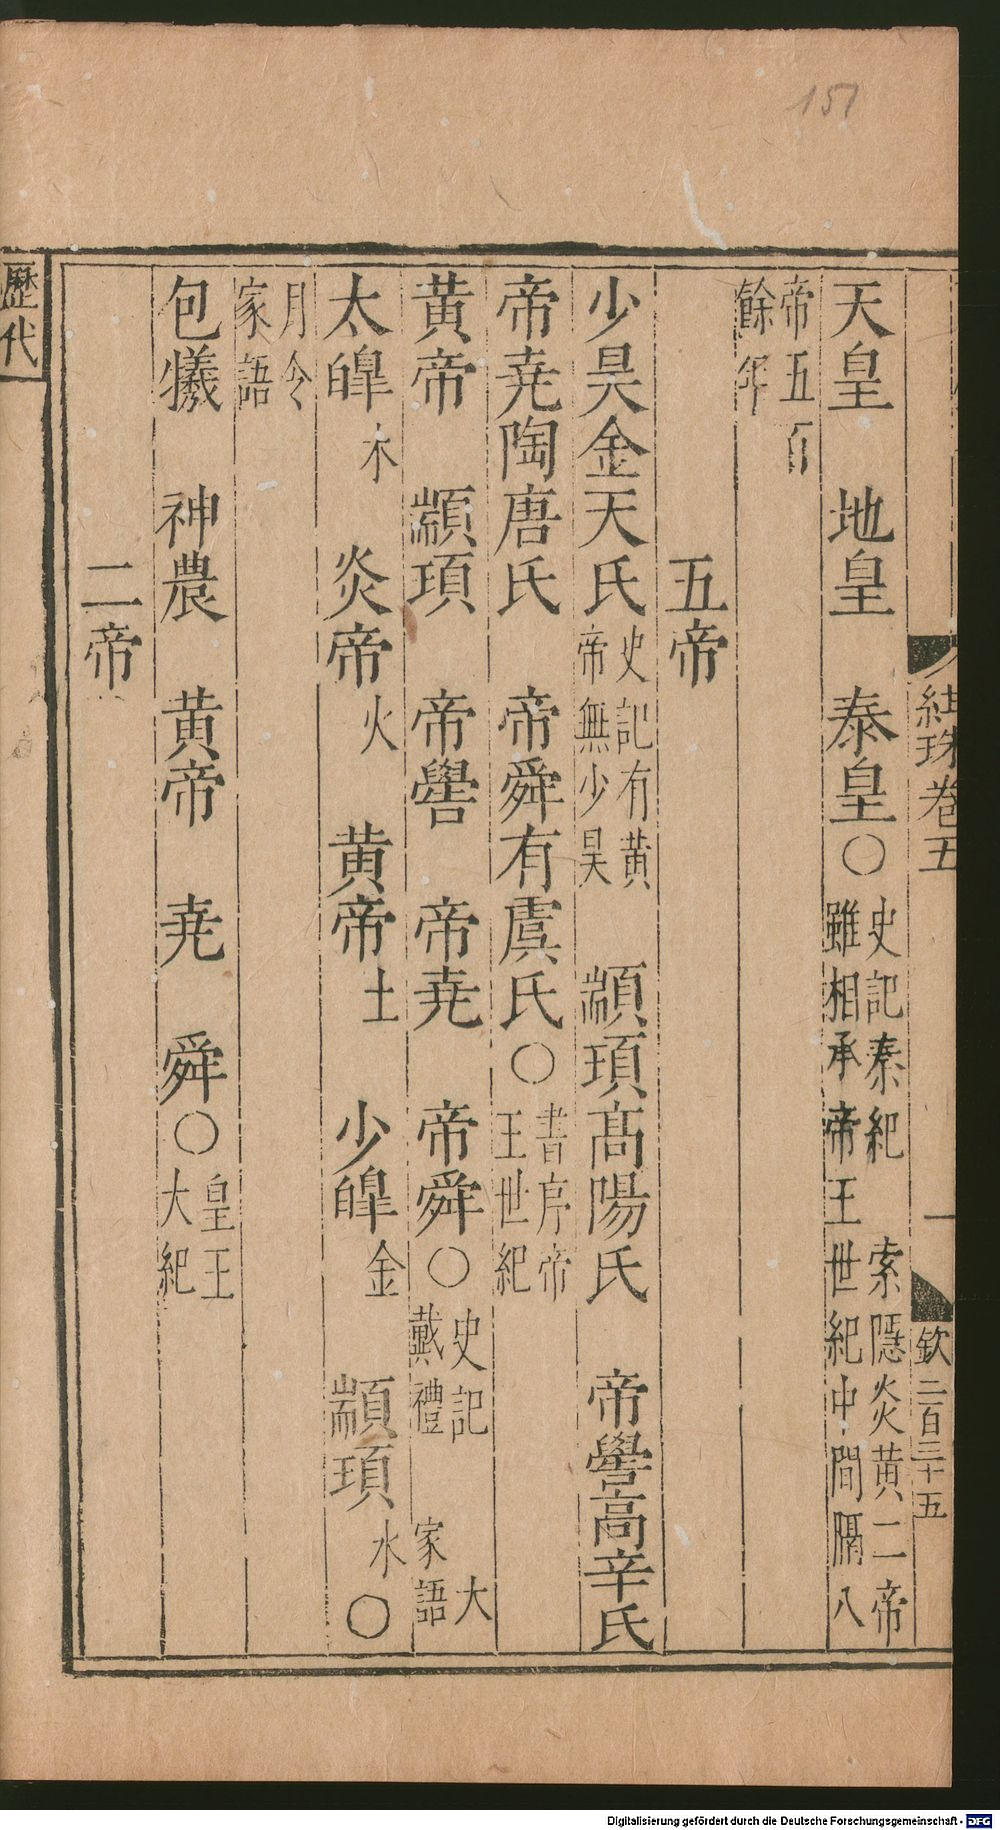 151
紺珠卷五
一
欽二百三十五
天皇　地皇　泰皇○史記秦紀　索隱炎黃二帝
雖相承帝王世紀中間隔八
帝五百
餘年
五帝
少昊金天氏史記有黃帝無少昊　顓頊高陽氏　帝嚳高辛氏
帝堯陶唐氏　帝舜有虞氏○書序帝王世紀
黃帝　顓頊　帝嚳　帝堯　帝舜○史記　大戴禮　家語
太皥木　炎帝火　黃帝土　少皥金　顓頊水○
月令
家語
包犧　神農　黃帝　堯　舜○皇王大紀
二帝
歷代
Digitalisierung gefördert durch die Deutsche Forschungsgemeinschaft - DFG